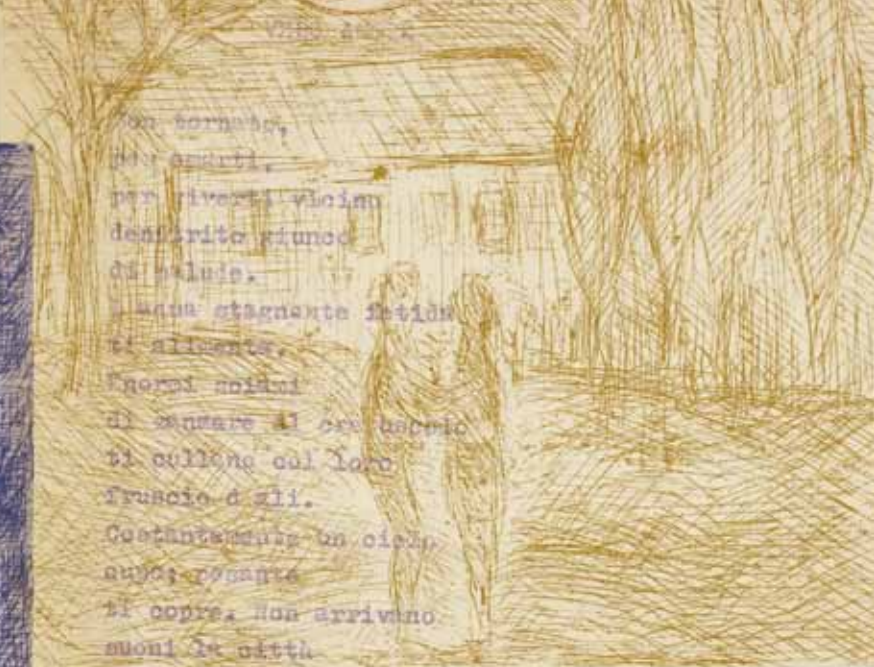 Non tornato,
per amarti,
per viverti vicino
giunco
di palude.
acqua stagnante fetida
ti alimenta.
Enormi sciami
di zanzare al crepuscolo
ti cullano col loro
fruscio d ali.
Costantemente un cielo
cupo; pesante
ti copre. Non arrivano
suoni la città